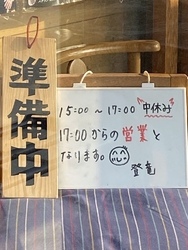 準備中
15:00〜17:00 "中休み"
17:00からの営業と
なります。
登竜